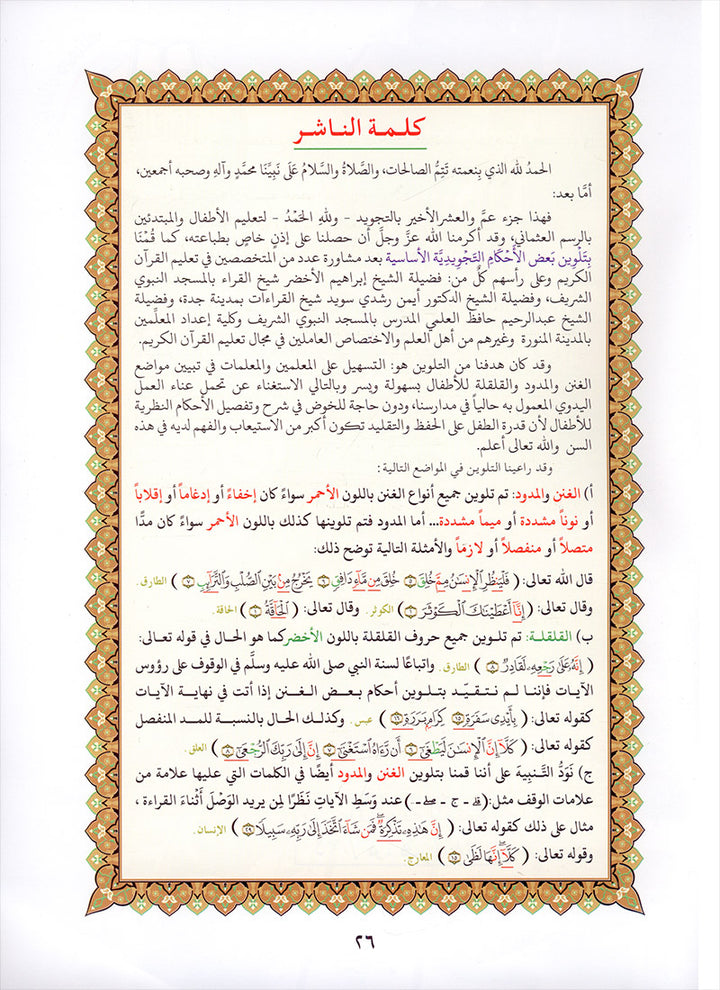 كلمة الناشر
الحمدُ لله الذي بِنعمته تَتِمُّ الصالحات، والصَّلاةُ والسَّلامُ عَلَى نَبِيِّنَا محمَّدٍ وآلهِ وصحبه أجمعين،
أمَّا بعد:
فهذا جزء عمَّ والعشر الأخير بالتجويد - وللهِ الحَمْدُ - لتعليم الأطفال والمبتدئين
بالرسم العثماني، وقد أكرمنا الله عزَّ وجلَّ أن حصلنا على إذنٍ خاصٍ بطباعته، كما قُمْنَا
بِتَلْوِين بَعْض الأَحْكَامِ التَّجْوِيدِيَّة الأساسية بعد مشاورة عدد من المتخصصين في تعليم القرآن
الكريم وعلى رأسهم كلٌّ من: فضيلة الشيخ إبراهيم الأخضر شيخ القراء بالمسجد النبوي
الشريف، وفضيلة الشيخ الدكتور أيمن رشدي سويد شيخ القراءات بمدينة جدة، وفضيلة
الشيخ عبدالرحيم حافظ العلمي المدرس بالمسجد النبوي الشريف وكلية إعداد المعلِّمين
بالمدينة المنورة وغيرهم من أهل العلم والاختصاص العاملين في مجال تعليم القرآن الكريم.
وقد كان هدفنا من التلوين هو: التسهيل على المعلمين والمعلمات في تبيين مواضع
الغنن والمدود والقلقلة للأطفال بسهولة ويسر وبالتالي الاستغناء عن تحمل عناء العمل
اليدوي المعمول به حالياً في مدارسنا، ودون حاجة للخوض في شرح وتفصيل الأحكام النظرية
للأطفال لأن قدرة الطفل على الحفظ والتقليد تكون أكبر من الاستيعاب والفهم لديه في هذه
السن والله تعالى أعلم.
وقد راعينا التلوين في المواضع التالية:
أ) الغنن والمدود: تم تلوين جميع أنواع الغنن باللون الأحمر سواءً كان إخفاءً أو إدغاماً أو إقلاباً
أو نوناً مشددة أو ميماً مشددة... أما المدود فتم تلوينها كذلك باللون الأحمر سواءً كان مدًّا
متصلاً أو منفصلاً أو لازمَاً والأمثلة التالية توضح ذلك:
قال الله تعالى: ( فَلْيَنظُرِ الْإِنسَنُ مِمَّ خُلِقَ ۝٥ خُلِقَ مِن مَّآءٍ دَافِقٍ ۝٦ يَخْرُجُ مِنْ بَيْنِ الصُّلْبِ وَالتَّرَآئِبِ ۝٧ ) الطارق.
وقال تعالى: ( إِنَّآ أَعْطَيْنَكَ الْكَوْثَرَ ۝١ ) الكوثر. وقال تعالى: ( الْحَآقَّةُ ۝١ ) الحاقة.
ب) القلقلة: تم تلوين جميع حروف القلقلة باللون الأخضر كما هو الحال في قوله تعالى:
( إِنَّهُ عَلَىٰ رَجْعِهِ لَقَادِرٌ ۝٨ ) الطارق. واتباعًا لسنة النبي صلى الله عليه وسلَّم في الوقوف على رؤوس
الآيات فإننا لم نتقيّد بتلوين أحكام بعض الغنن إذا أتت في نهاية الآيات
كقوله تعالى: ( بِأَيْدِى سَفَرَةٍ ۝١٥ كِرَامٍ بَرَرَةٍ ۝١٦ ) عبس. وكذلك الحال بالنسبة للمد المنفصل
كقوله تعالى: ( كَلَّآ إِنَّ الْإِنسَنَ لَيَطْغَىٰٓ ۝٦ أَن رَّءَاهُ اسْتَغْنَىٰٓ ۝٧ إِنَّ إِلَىٰ رَبِّكَ الرُّجْعَىٰٓ ۝٨ ) العلق.
ج) نَوَدُّ التَّنبِيهَ على أننا قمنا بتلوين الغنن والمدود أيضًا في الكلمات التي عليها علامة من
علامات الوقف مثل:( قلى - ج - صلى -.) عند وَسَطِ الآياتِ نَظَرًا لِمن يريد الوَصْلَ أَثْناءَ القراءة ،
مثال على ذلك كقوله تعالى: ( إِنَّ هَٰذِهِ تَذْكِرَةٌ ۖ فَمَن شَآءَ اتَّخَذَ إِلَىٰ رَبِّهِ سَبِيلًا ۝٢٩ ) الإنسان.
وقوله تعالى: ( كَلَّآ ۖ إِنَّهَا لَظَىٰ ۝١٥ ) المعارج.
٢٦